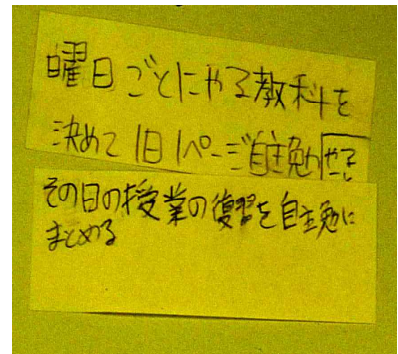 曜日ごとにやる教科を
決めて1日1ページ自主勉やる
その日の授業の復習を自主勉に
まとめる